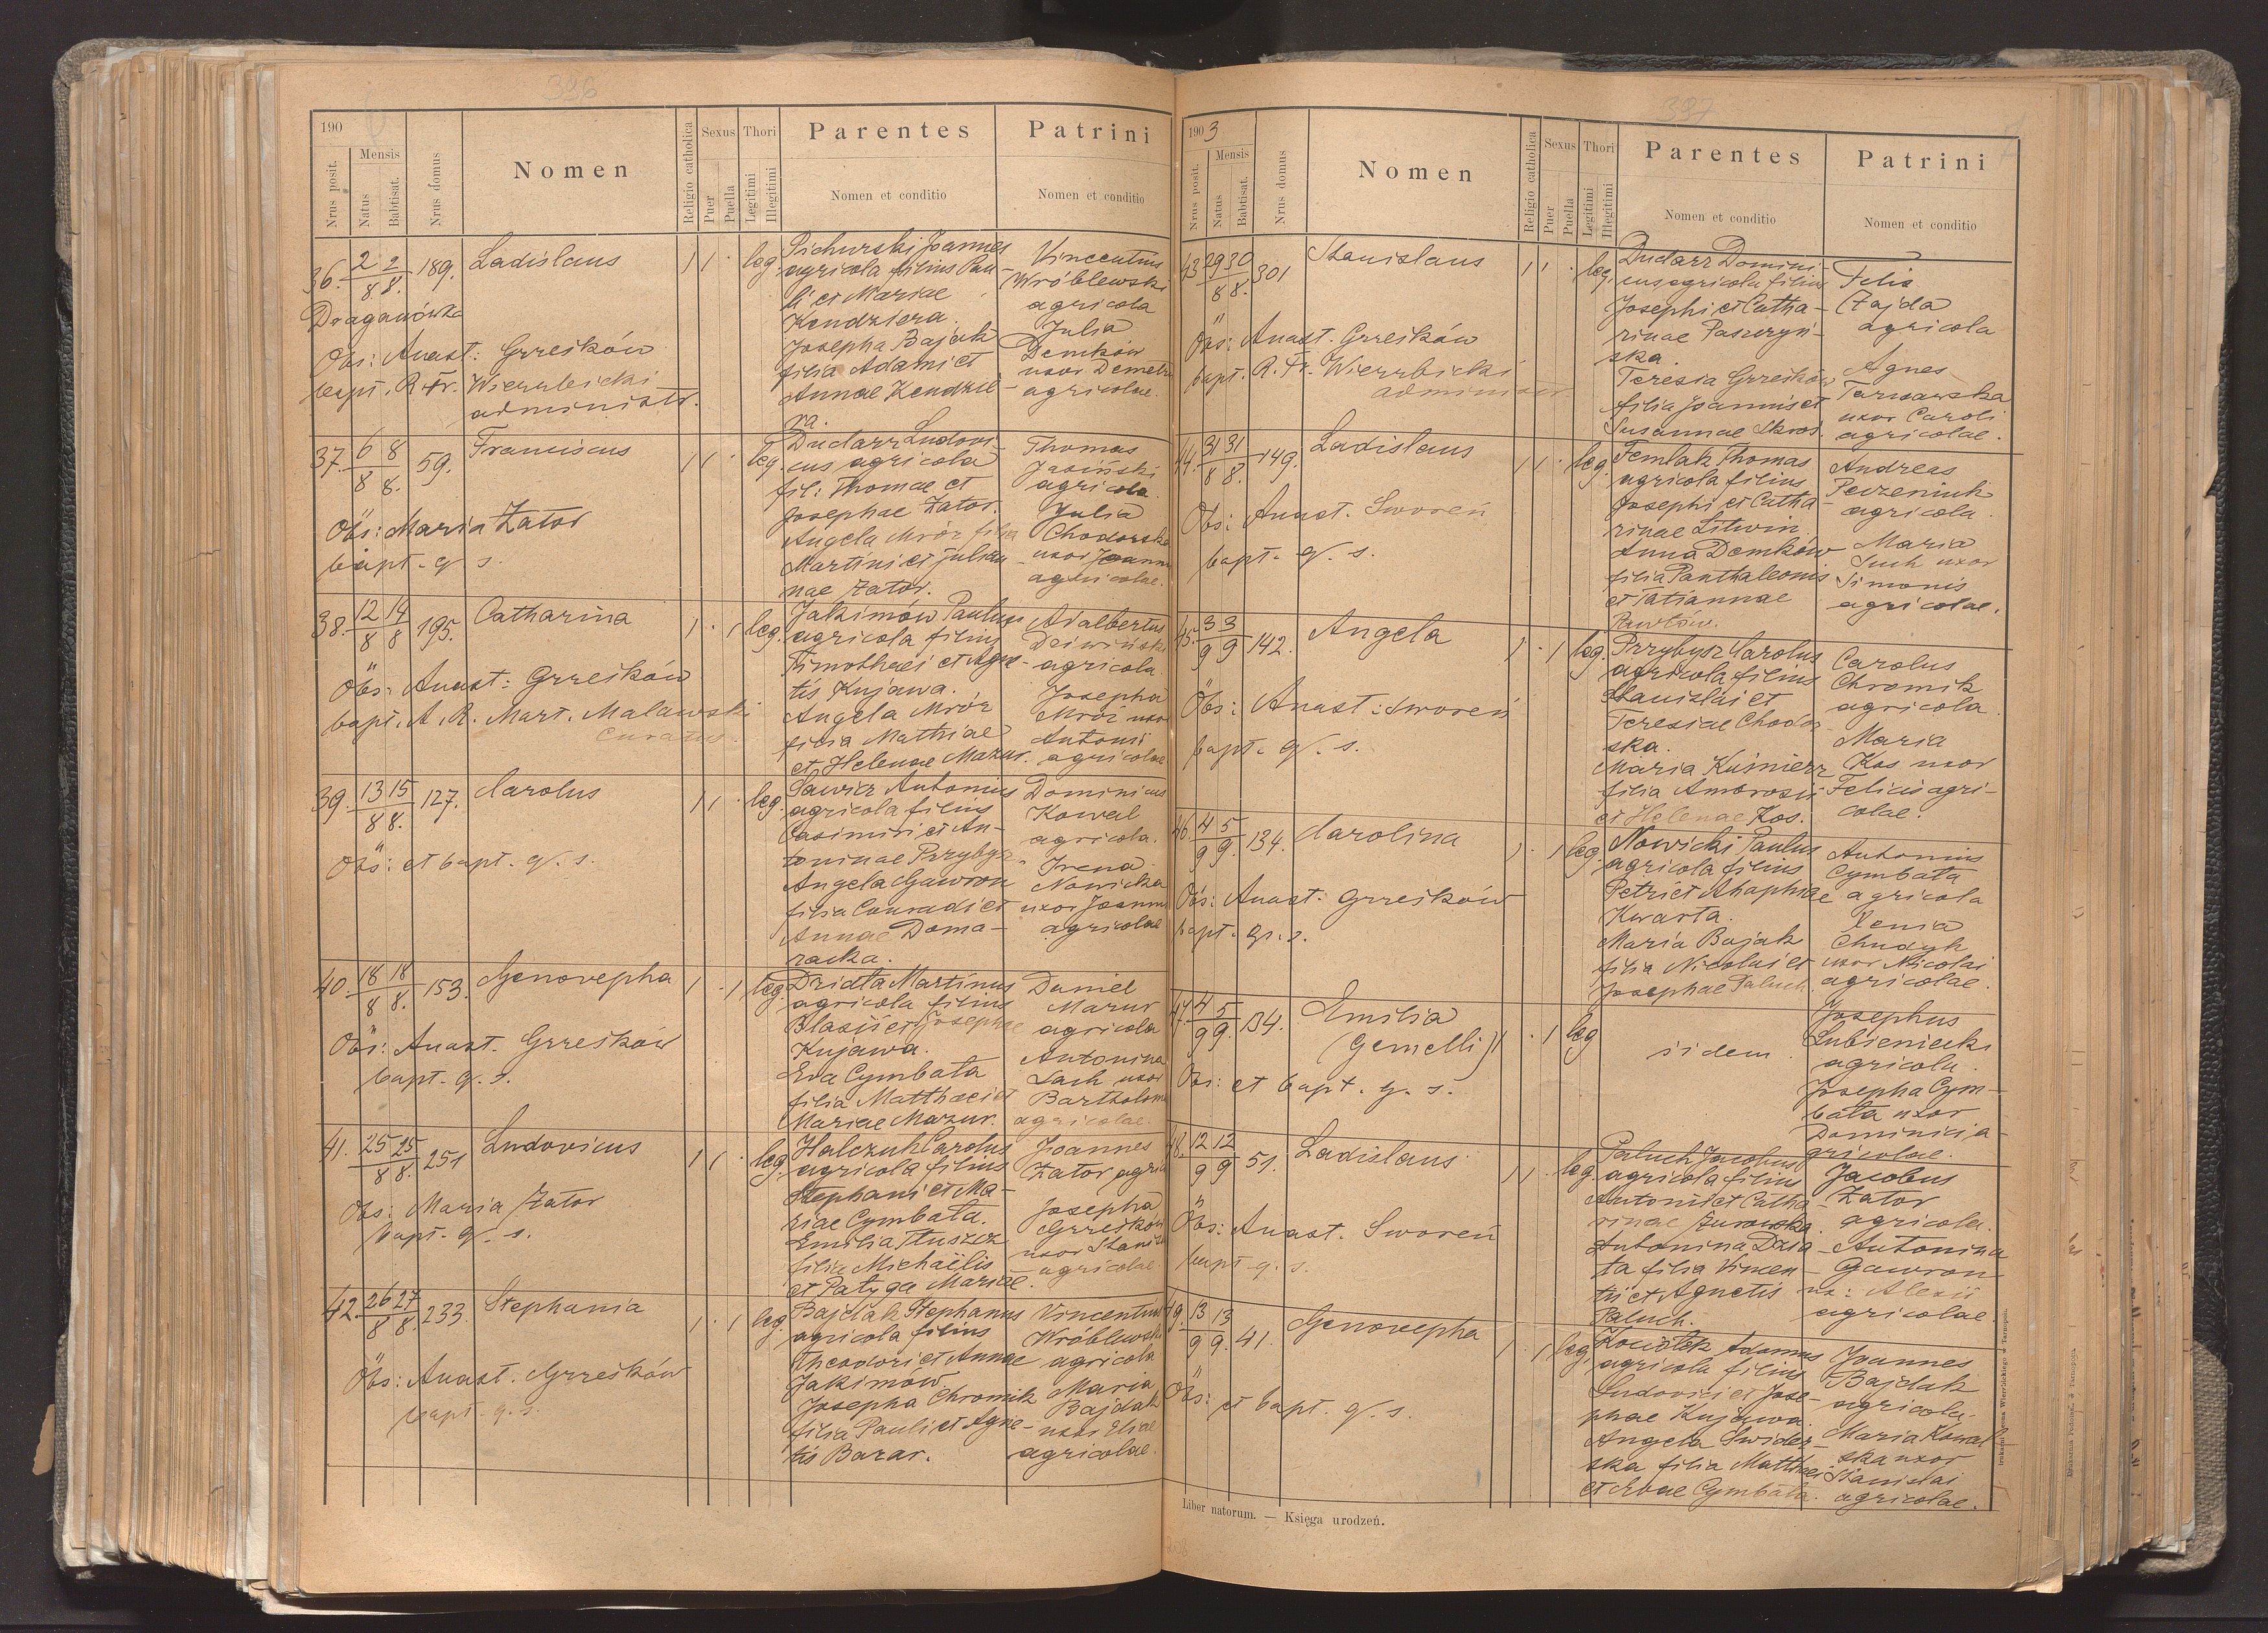 326
190
Nrus posit.
Mensis
Natus
Babtisat.
Nrus domus
Nomen
Religio catholica
Sexus
Puer
Puella
Thori
Legitimi
Illegitimi
Parentes
Nomen et conditio
Patrini
Nomen et conditio
36. 2/8 2/8. 189. Ladislaus 1 1 · leg.
Draganówka
Obs: Anast: Grześków
bapt. R. Fr. Wierzbicki
administr.
Pichurski Joannes
agricola filius Pau-
li et Mariae
Kendziera.
Josepha Bajdak
filia Adami et
Annae Kendzie-
ra.
Vincentius
Wróblewski
agricola
Julia
Demków
uxor Demetri
agricolae.
37. 6/8 8/8. 59. Franciscus 1 1 · leg.
Obs: Maria Zator
bapt. q. s.
Dudarz Ludovi-
cus agricola
fil: Thomae et
Josephae Zator.
Angela Mróz filia
Martini et Julian-
nae Zator.
Thomas
Jasiński
agricola.
Julia
Chodorska
uxor Joannis
agricolae.
38. 12/8 14/8 195. Catharina 1 · 1 leg.
Obs: Anast: Grześków
bapt. A. R. Mart. Malawski
Curatus.
Jakimów Paulus
agricola filius
Timothaei et Agne-
tis Kujawa.
Angela Mróz
filia Mathiae
et Helenae Mazur.
Adalbertus
agricola
Josepha
Mróz uxor
Antoni
agricolae
39. 13/8 15/8. 127. Carolus 1 1 · leg.
Obs: et bapt. q. s.
Sawicz Antonius
agricola filius
Casimiri et An-
toninae Przybysz.
Angela Gawron
filia Conradi et
Annae Doma-
racka.
Dominicus
Kowal
agricola.
Irena
Nowicka
uxor Joannis
agricolae
40. 18/8 18/8. 153. Genovepha 1 · 1 leg.
Obs: Anast. Grześków
bapt. q. s.
Dzidta Martinus
agricola filius
Blasii et Josephae
Kujawa.
Eva Cymbała
filia Matthaei et
Mariae Mazur.
Daniel
Mazur
agricola
Antonina
Lach uxor
Bartholom
agricolae.
41. 25/8 25/8. 251 Ludovicus 1 1 · leg.
Obs: Maria Zator
bapt. q. s.
Halczuk Carolus
agricola filius
Stephani et Ma-
riae Cymbała.
Emilia Tłuszcz
filia Michaëlis
et Patyga Mariae.
Joannes
Zator agric
Josepha
Grześków
uxor Stanisl
agricolae
42. 26/8 27/8. 233. Stephania 1 · 1 leg.
Obs: Anast. Grześków
bapt. q. s.
Bajdak Stephanus
agricola filius
Theodori et Annae
Jakimów.
Josepha Chromik
filia Pauli et Agne-
tis Bazar.
Vincentius
Wróblewski
agricola
Maria
Bajdak
uxor Eliae
agricolae.
327
1903
Nrus posit.
Mensis
Natus
Babtisat.
Nrus domus
Nomen
Religio catholica
Sexus
Puer
Puella
Thori
Legitimi
Illegitimi
Parentes
Nomen et conditio
Patrini
Nomen et conditio
43. 29/8 30/8. 301 Stanislaus 1 1 · leg.
Obs: Anast. Grześków
bapt. R. Fr. Wierzbicki
administr
Dudarz Domini-
cus agricola filius
Josephi et Catha-
rinae Paszczyń-
ska.
Teresia Grześków
filia Joannis et
Susannae
Felix
Zajda
agricola
Agnes
Tarnawska
uxor Caroli
agricolae.
44. 31/8 31/8. 149. Ladislaus 1 1 · leg.
Obs: Anast. Sworeń
bapt. q. s.
Femlak Thomas
agricola filius
Josephi et Catha-
rinae Litwin
Anna Demków
filia Panthaleonis
et Tatiannae
Pawłów.
Andreas
agricola.
Maria
Such uxor
Simonis
agricolae.
45. 3/9 3/9 142. Angela 1 · 1 leg.
Obs: Anast: Sworeń
bapt. q. s.
Przybysz Carolus
agricola filius
Stanislai et
Teresiae Chodor-
ska.
Maria Kuśnierz
filia Ambrosii
et Helenae Kos.
Carolus
Chromik
agricola
Maria
Kos uxor
Felicis agri-
colae.
46. 4/9 5/9. 134. Carolina 1 · 1 leg.
Obs: Anast: Grześków
bapt. q. s.
Nowicki Paulus
agricola filius
Petri et Ahaphiae
Kwarta.
Maria Bajak
filia Nicolai et
Josephae Paluch
Antonius
Cymbała
agricola
Xenia
Chudyk
uxor Nicolai
agricolae.
47. 4/9 5/9. 134. Emilia 1 · 1 leg
(Gemelli)
Obs: et bapt. q. s.
iidem.
Josephus
Lubieniecki
agricola.
Josepha Cym-
bała uxor
Dominici a-
gricolae.
48. 12/9 12/9 51. Ladislaus 1 1 · leg.
Obs: Anast. Sworeń
bapt. q. s.
Paluch Jacobus
agricola filius
Antonii et Catha-
rinae Żurawska.
Antonina Dzia-
ta filia Vincen-
tii et Agnetis
Paluch.
Jacobus
Zator
agricola.
Antonina
Gawron
ux: Alexii
agricolae.
49. 13/9 13/9. 41. Genovepha 1 · 1 leg.
Obs: et bapt. q. s.
Adamus
agricola filius
Ludovici et Jose-
phae Kujawa.
Angela Swider-
ska filia Matthaei
et Evae Cymbała.
Joannes
Bajdak
agricola.
Maria Kowal
ska uxor
Stanislai
agricolae.
Liber natorum. — Księga urodzeń.